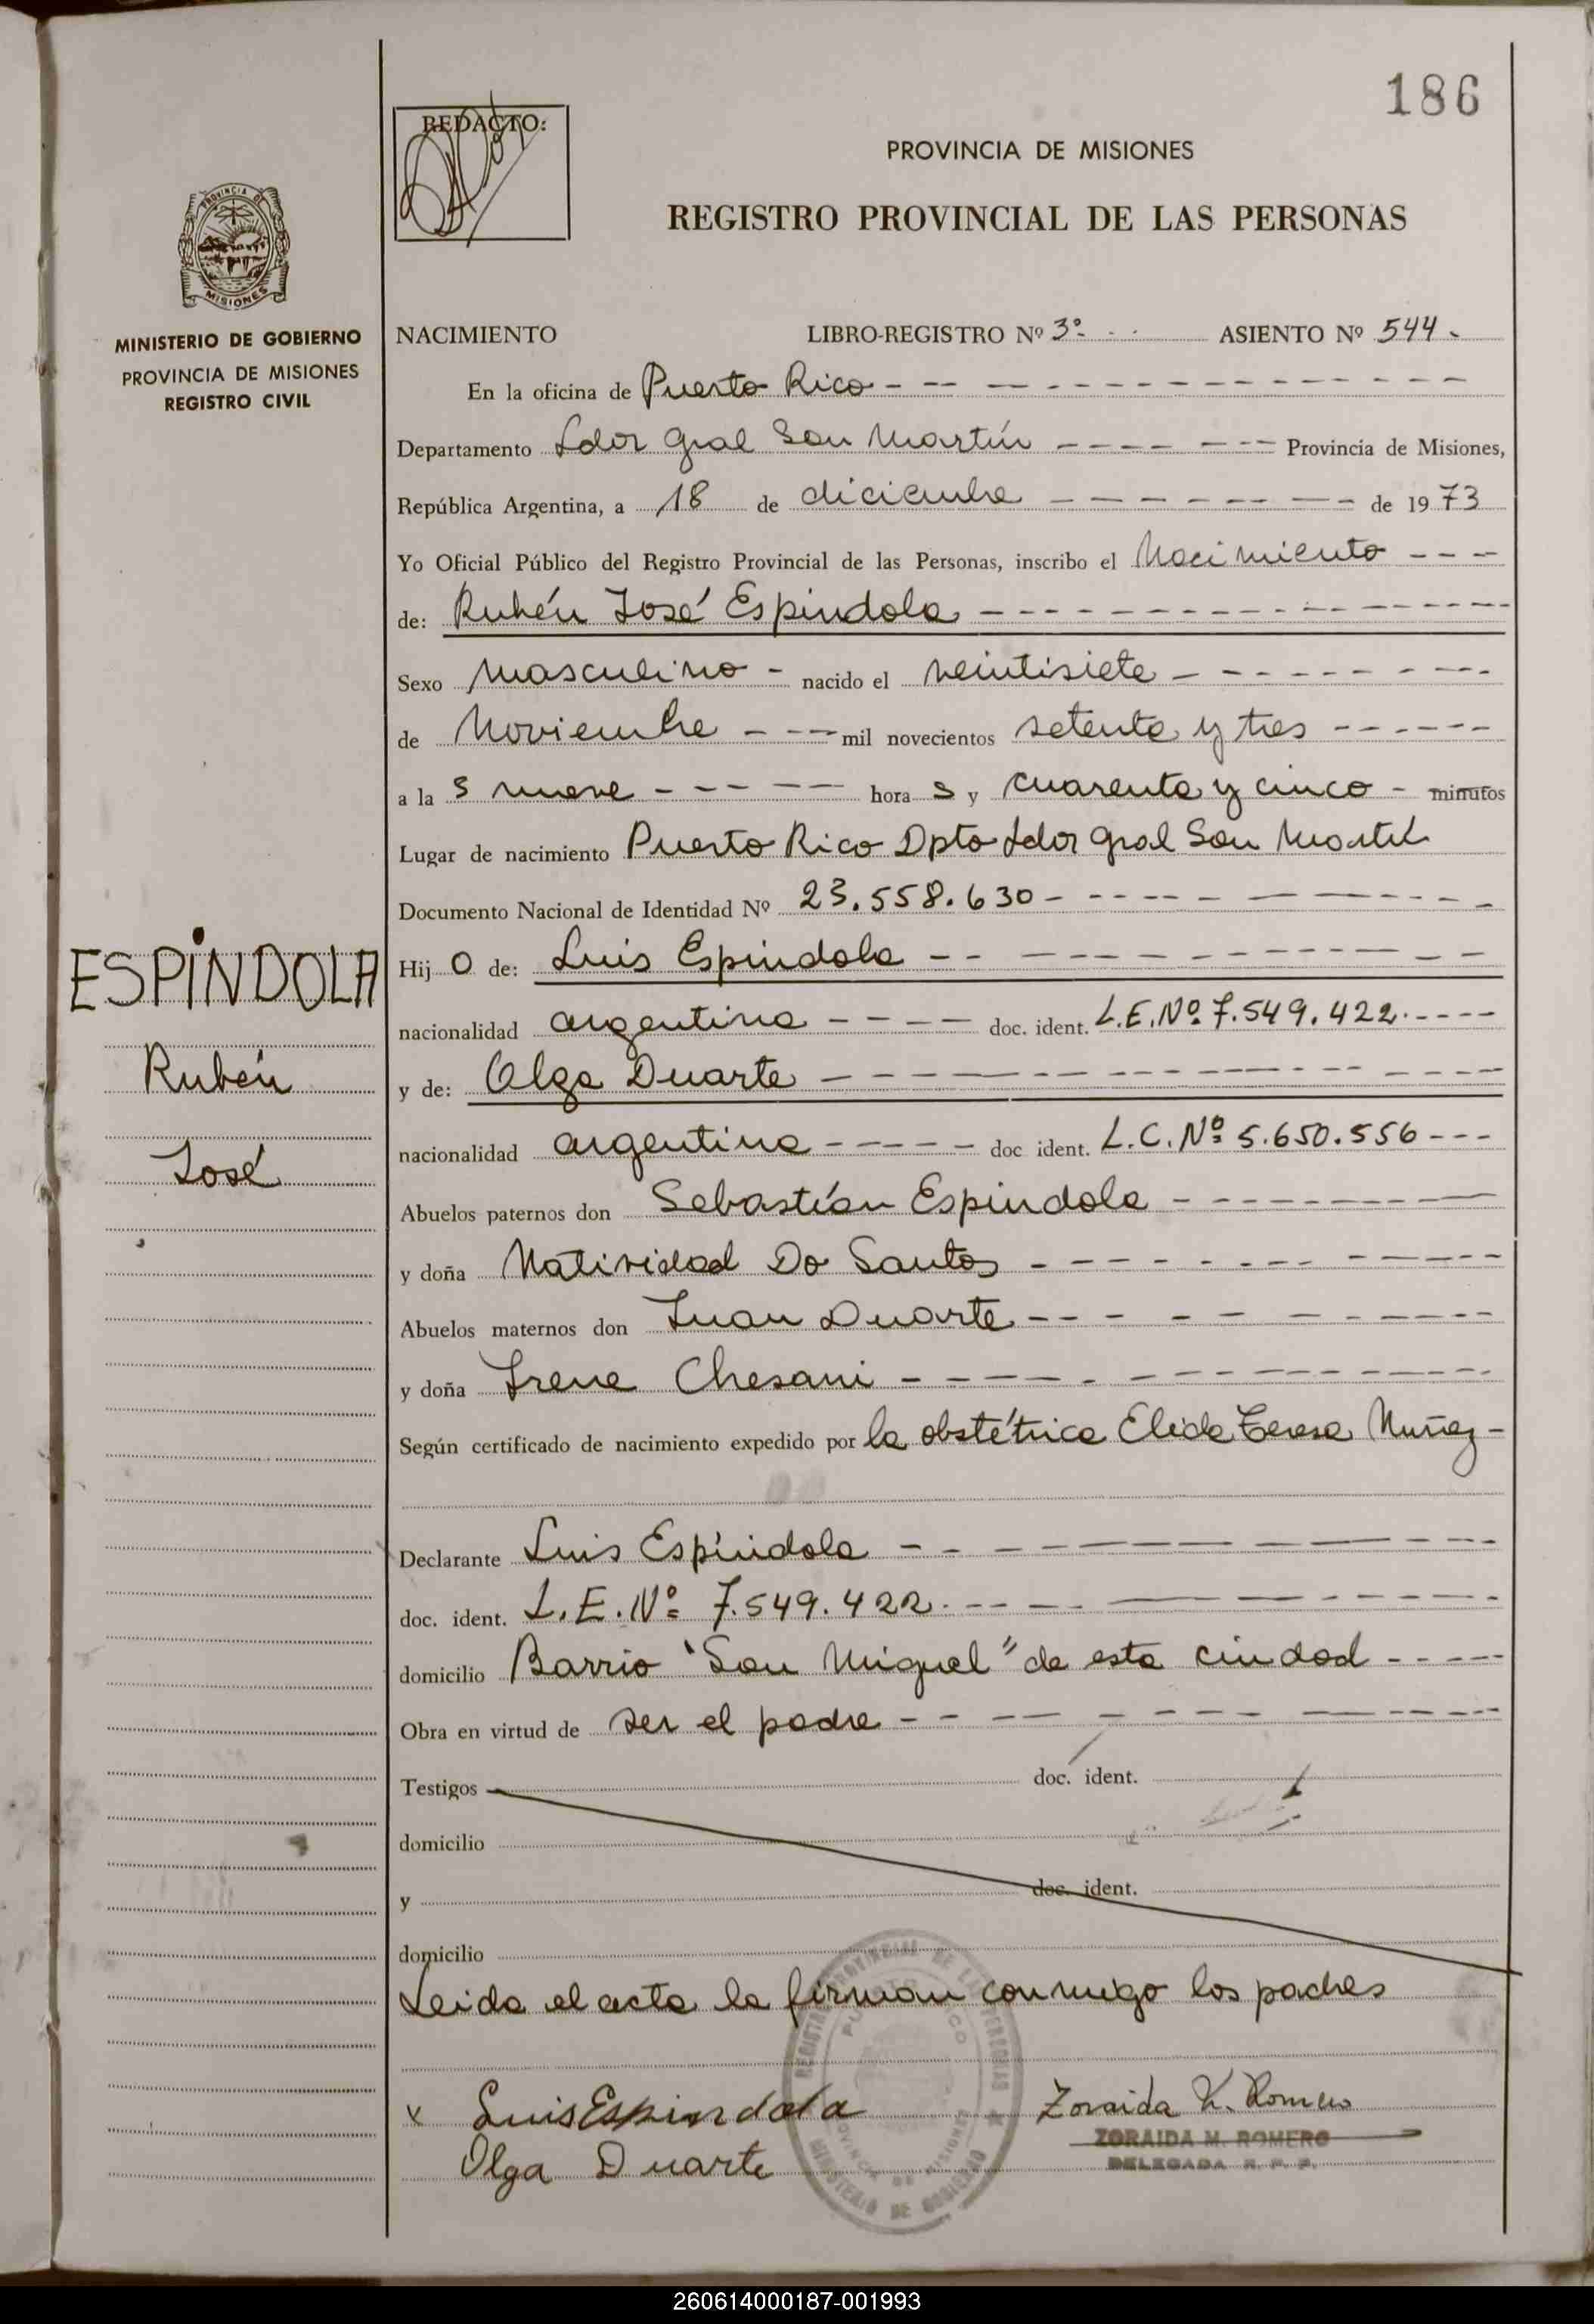 186
REDACTO:
PROVINCIA DE MISIONES
REGISTRO PROVINCIAL DE LAS PERSONAS
PROVINCIA DE
MISIONES
MINISTERIO DE GOBIERNO
PROVINCIA DE MISIONES
REGISTRO CIVIL
NACIMIENTO LIBRO-REGISTRO Nº 3º ASIENTO Nº 544
En la oficina de Puerto Rico
Departamento Ldor Gral San Martín Provincia de Misiones,
República Argentina, a 18 de diciembre de 1973
Yo Oficial Público del Registro Provincial de las Personas, inscribo el Nacimiento
de: Rubén José Espíndola
Sexo Masculino nacido el veintisiete
de Noviembre mil novecientos setenta y tres
a la s nueve hora s y cuarenta y cinco minutos
Lugar de nacimiento Puerto Rico Dpto Ldor Gral San Martín
Documento Nacional de Identidad Nº 23.558.630
Hij o de: Luis Espíndola
nacionalidad argentina doc. ident. L.E. Nº 7.549.422
y de: Olga Duarte
nacionalidad argentina doc ident. L.C. Nº 5.650.556
Abuelos paternos don Sebastián Espíndola
y doña Natividad Do Santos
Abuelos maternos don Juan Duarte
y doña Irene Chesani
Según certificado de nacimiento expedido por la obstétrica Elida Teresa Nuñez
Declarante Luis Espíndola
doc. ident. L.E. Nº 7.549.422
domicilio Barrio "San Miguel" de esta ciudad
Obra en virtud de ser el padre
Testigos doc. ident.
domicilio
y doc. ident.
domicilio
Leida el acta la firman conmigo los padres
x Luis Espindola
Olga Duarte
Zoraida M. Romero
ZORAIDA M. ROMERO
DELEGADA R. P. P.
REGISTRO PROVINCIAL DE LAS PERSONAS
PUERTO RICO
PROVINCIA DE MISIONES
MINISTERIO DE GOBIERNO
ESPÍNDOLA
Rubén
José
260614000187-001993